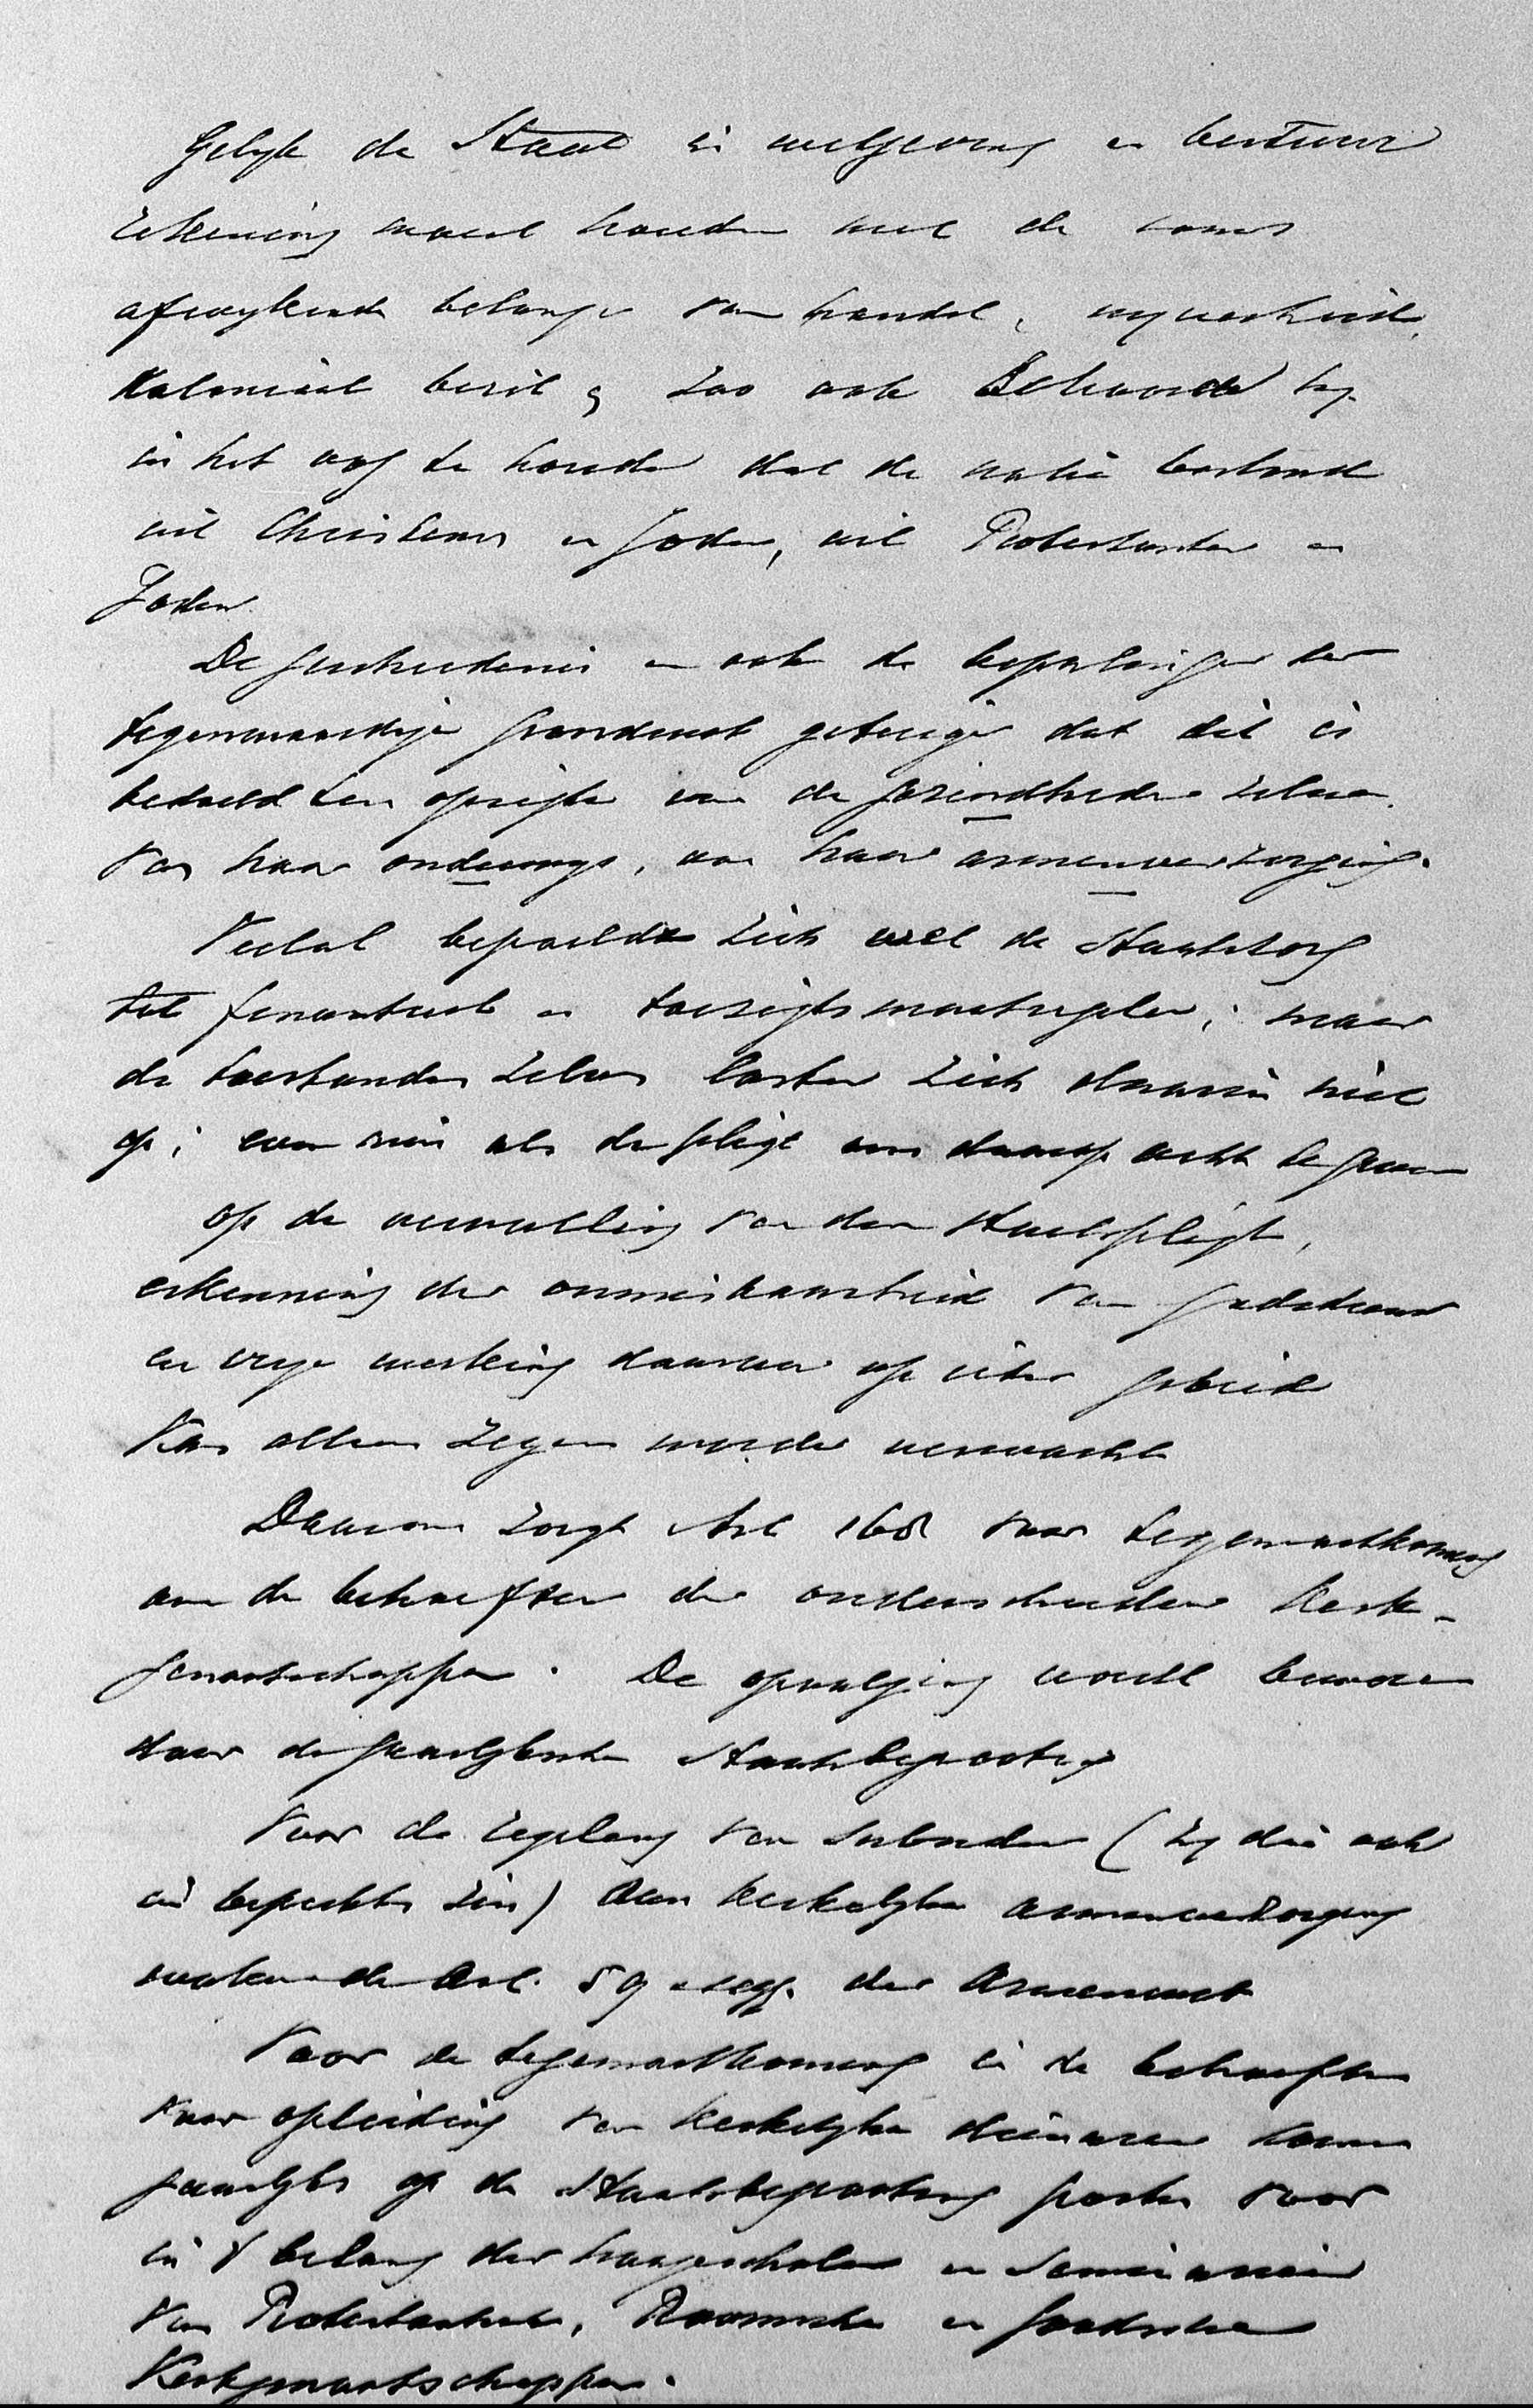 Gelijk de Staat in wetgeving en bestuur
rekening moest houden met de soms
afwijkende belangen van handel, nijverheid,
koloniaal bezit, zoo ook behoorde hij
in het oog te houden dat de natie bestond
uit Christenen en Joden, uit Protestanten en
Joden.
De geschiedenis en ook de bepalingen der
tegenwoordige grondwet getuigen dat dit is
bedoeld ten opzigte van de gezindheden zelven,
van haar onderwijs, van haar armenverzorging.
Veelal bepaalde zich wel de Staatszorg
tot financieele en toezigtsmaatregelen; maar
de toestanden zelven losten zich daarin niet
op; even min als de pligt om daarop acht te geven
op de vervulling van den Staatspligt,
erkenning der onmisbaarheid van godsdienst
en vrije werking daarvan op ieder gebied
kan alleen zegen worden verwacht
Daarom zorgt Art 168 voor tegemoetkoming
aan de behoeften der onderscheidene kerk-
genootschappen. De opvolging wordt bewezen
door de jaarlijksche Staatsbegrooting
Voor de regeling van subsidien (zij die ook
in beperkten zin) aan kerkelijke armenverzorging
waken de Art. 59 en seqq. der Armenwet
Voor de tegemoetkoming in de behoeften
voor opleiding van kerkelijke dienaren komen
jaarlijks op de Staatsbegrooting posten voor
in 't belang der hoogescholen en seminarien
van Protestantsche, Roomsche en Joodsche
Kerkgenootschappen.